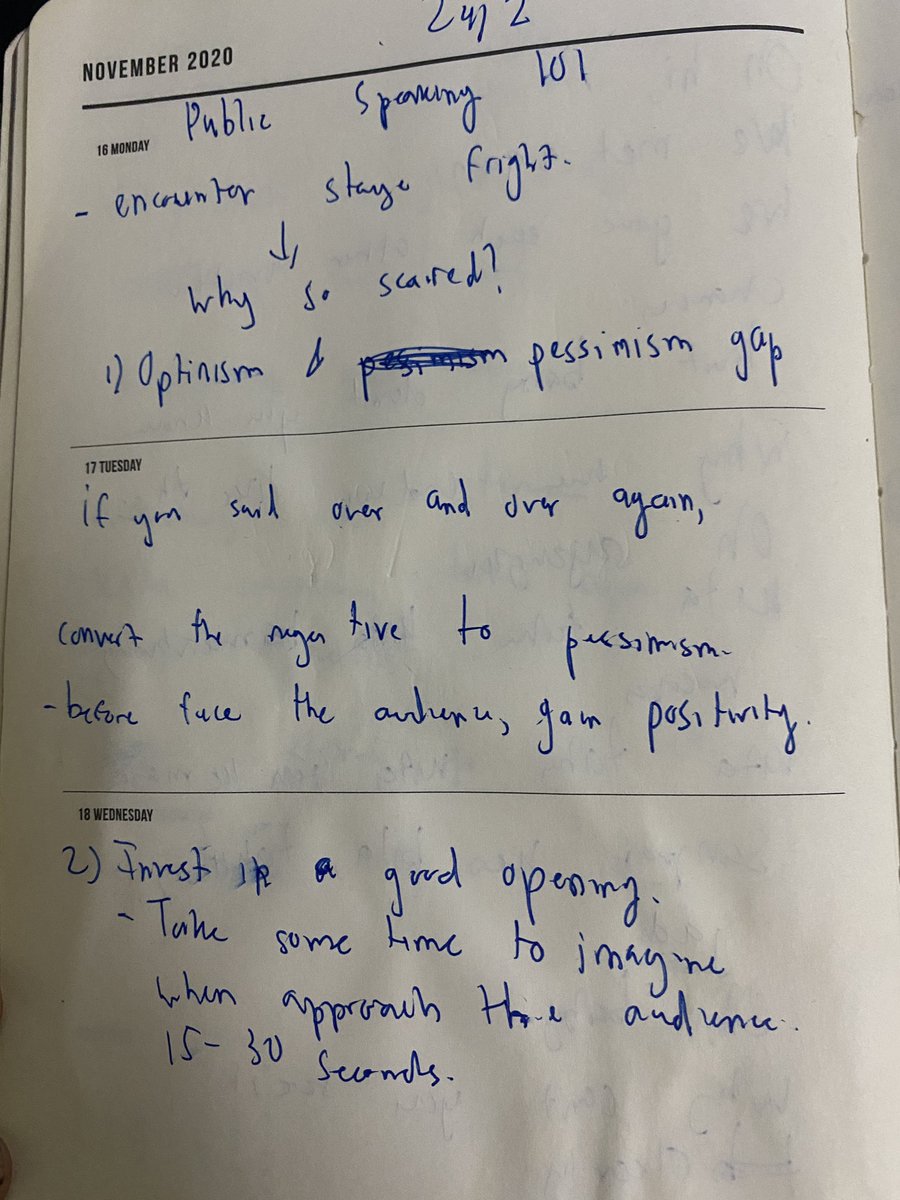 NOVEMBER 2020
Public Speaking 101
16 MONDAY
- encounter stage fright.
↓
Why so scaired?
1) Optinism & pessimism pessimism gap
17 TUESDAY
if you said over and over again,
convert the negative to pessimism.
- before face the audience, gain positivity.
18 WEDNESDAY
2) Invest in a good opening.
- Take some time to imagine
when approach the audience.
15-30 seconds.